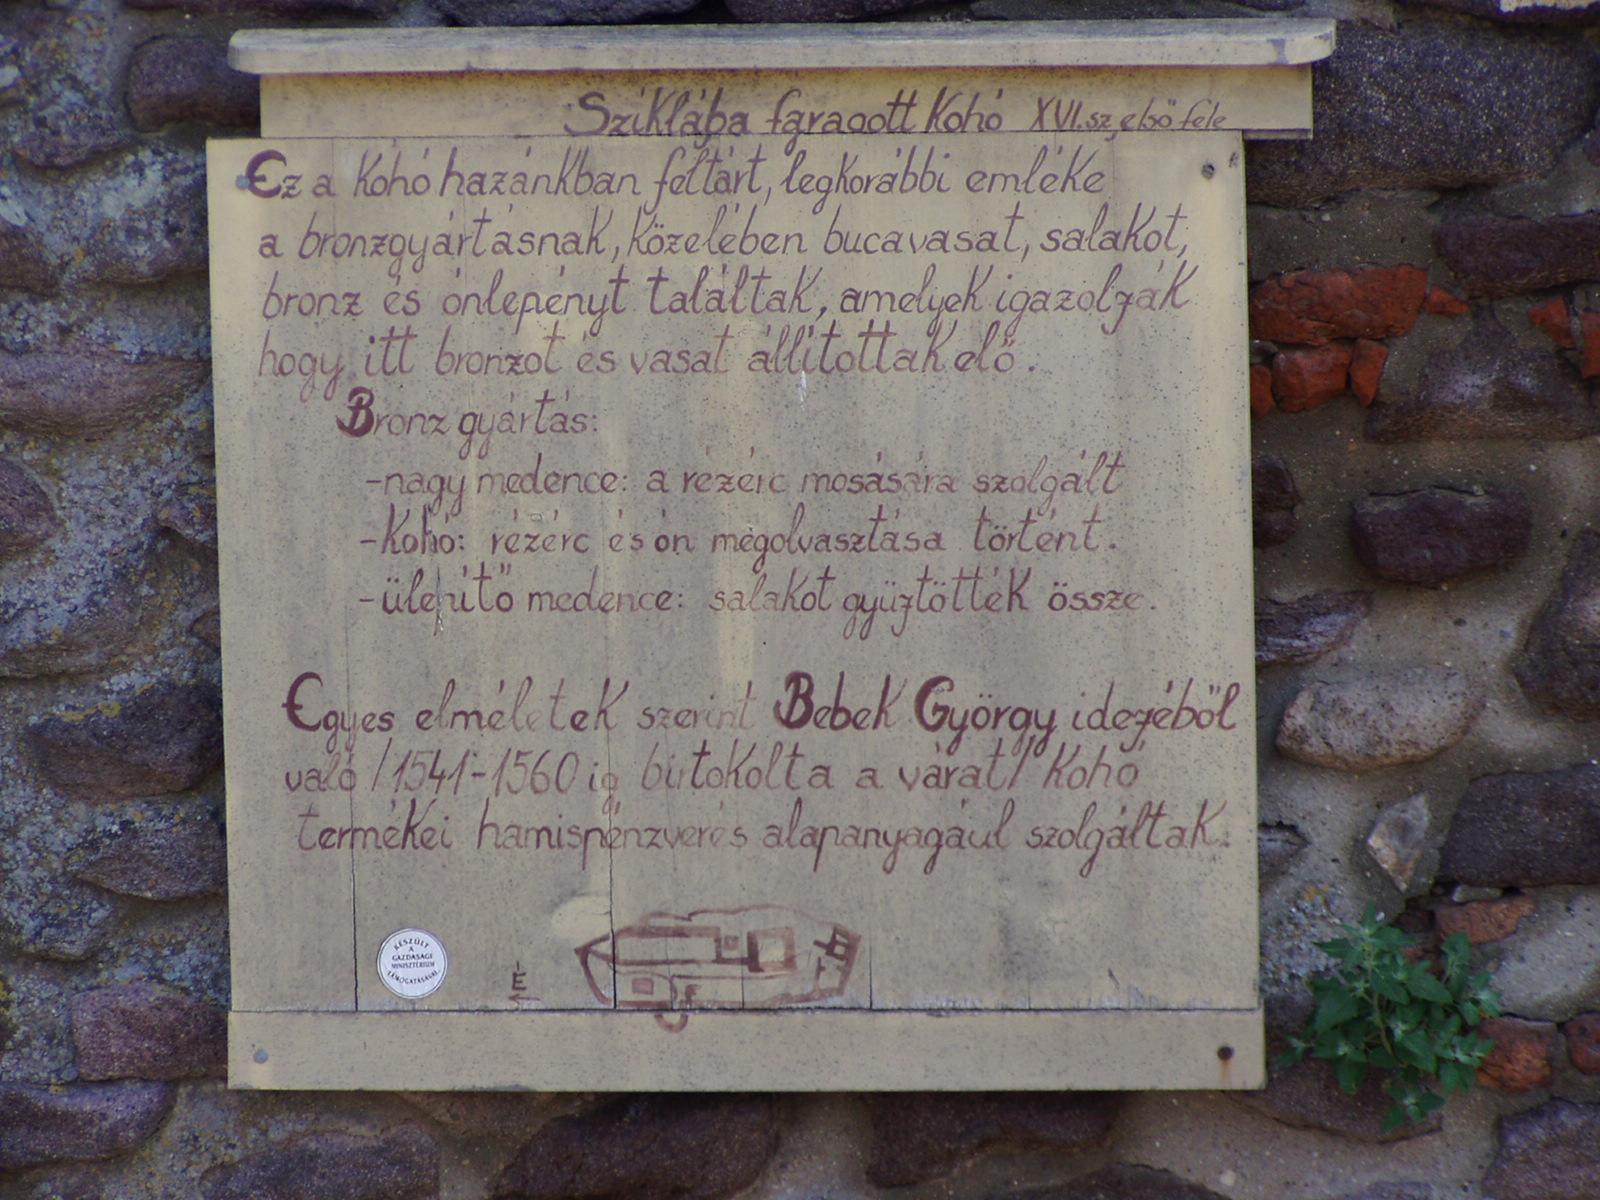 Sziklába faragott Kohó XVI.sz, első fele
Ez a Kohó hazánkban feltárt, legkorábbi emléke
a bronzgyártásnak, közelében bucavasat, salakot,
bronz és ónlepényt találtak, amelyek igazolják
hogy itt bronzot és vasat állítottak elő.
Bronz gyártás:
-nagy medence: a rézérc mosására szolgált
-Kohó: rézérc és ón megolvasztása történt.
-ülepítő medence: salakot gyűjtötték össze.
Egyes elméletek szerint Bebek György idejéből
való /1541-1560 ig birtokolta a várat/ Kohó
termékei hamispénzverés alapanyagául szolgáltak.
KÉSZÜLT
A
GAZDASÁGI
MINISZTÉRIUM
TÁMOGATÁSÁVAL
É